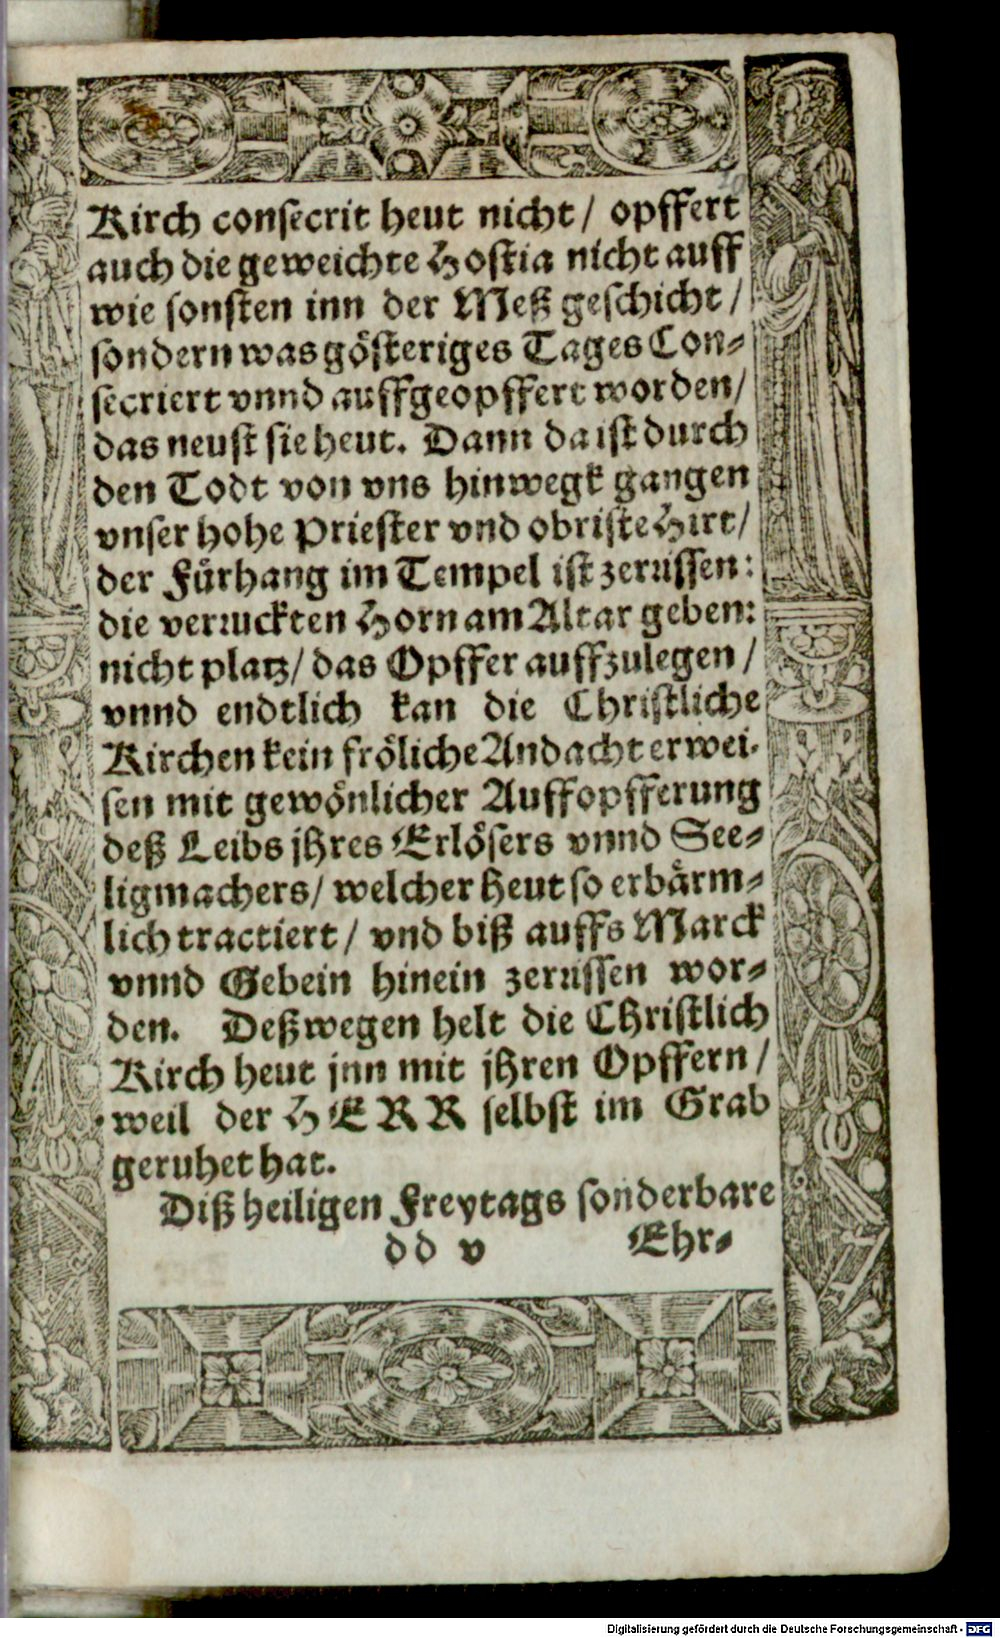 Kirch consecrit heut nicht / opffert
auch die geweichte Hostia nicht auff
wie sonsten inn der Meß geschicht /
sondern was gösteriges Tages Con⸗
secriert vnnd auffgeopffert worden /
das neust sie heut. Dann da ist durch
den Todt von vns hinwegk gangen
vnser hohe Priester vnd obriste Hirt /
der Fürhang im Tempel ist zerrissen:
die verruckten Horn am Altar geben:
nicht platz / das Opffer auffzulegen /
vnnd endtlich kan die Christliche
Kirchen kein fröliche Andacht erwei⸗
sen mit gewönlicher Auffopfferung
deß Leibs jhres Erlösers vnnd See⸗
ligmachers / welcher heut so erbärm⸗
lich tractiert / vnd biß auffs Marck
vnnd Gebein hinein zerrissen wor⸗
den. Deßwegen helt die Christlich
Kirch heut jnn mit jhren Opffern /
weil der HERR selbst im Grab
geruhet hat.
Diß heiligen Freytags sonderbare
dd v Ehr⸗
Digitalisierung gefördert durch die Deutsche Forschungsgemeinschaft - DFG